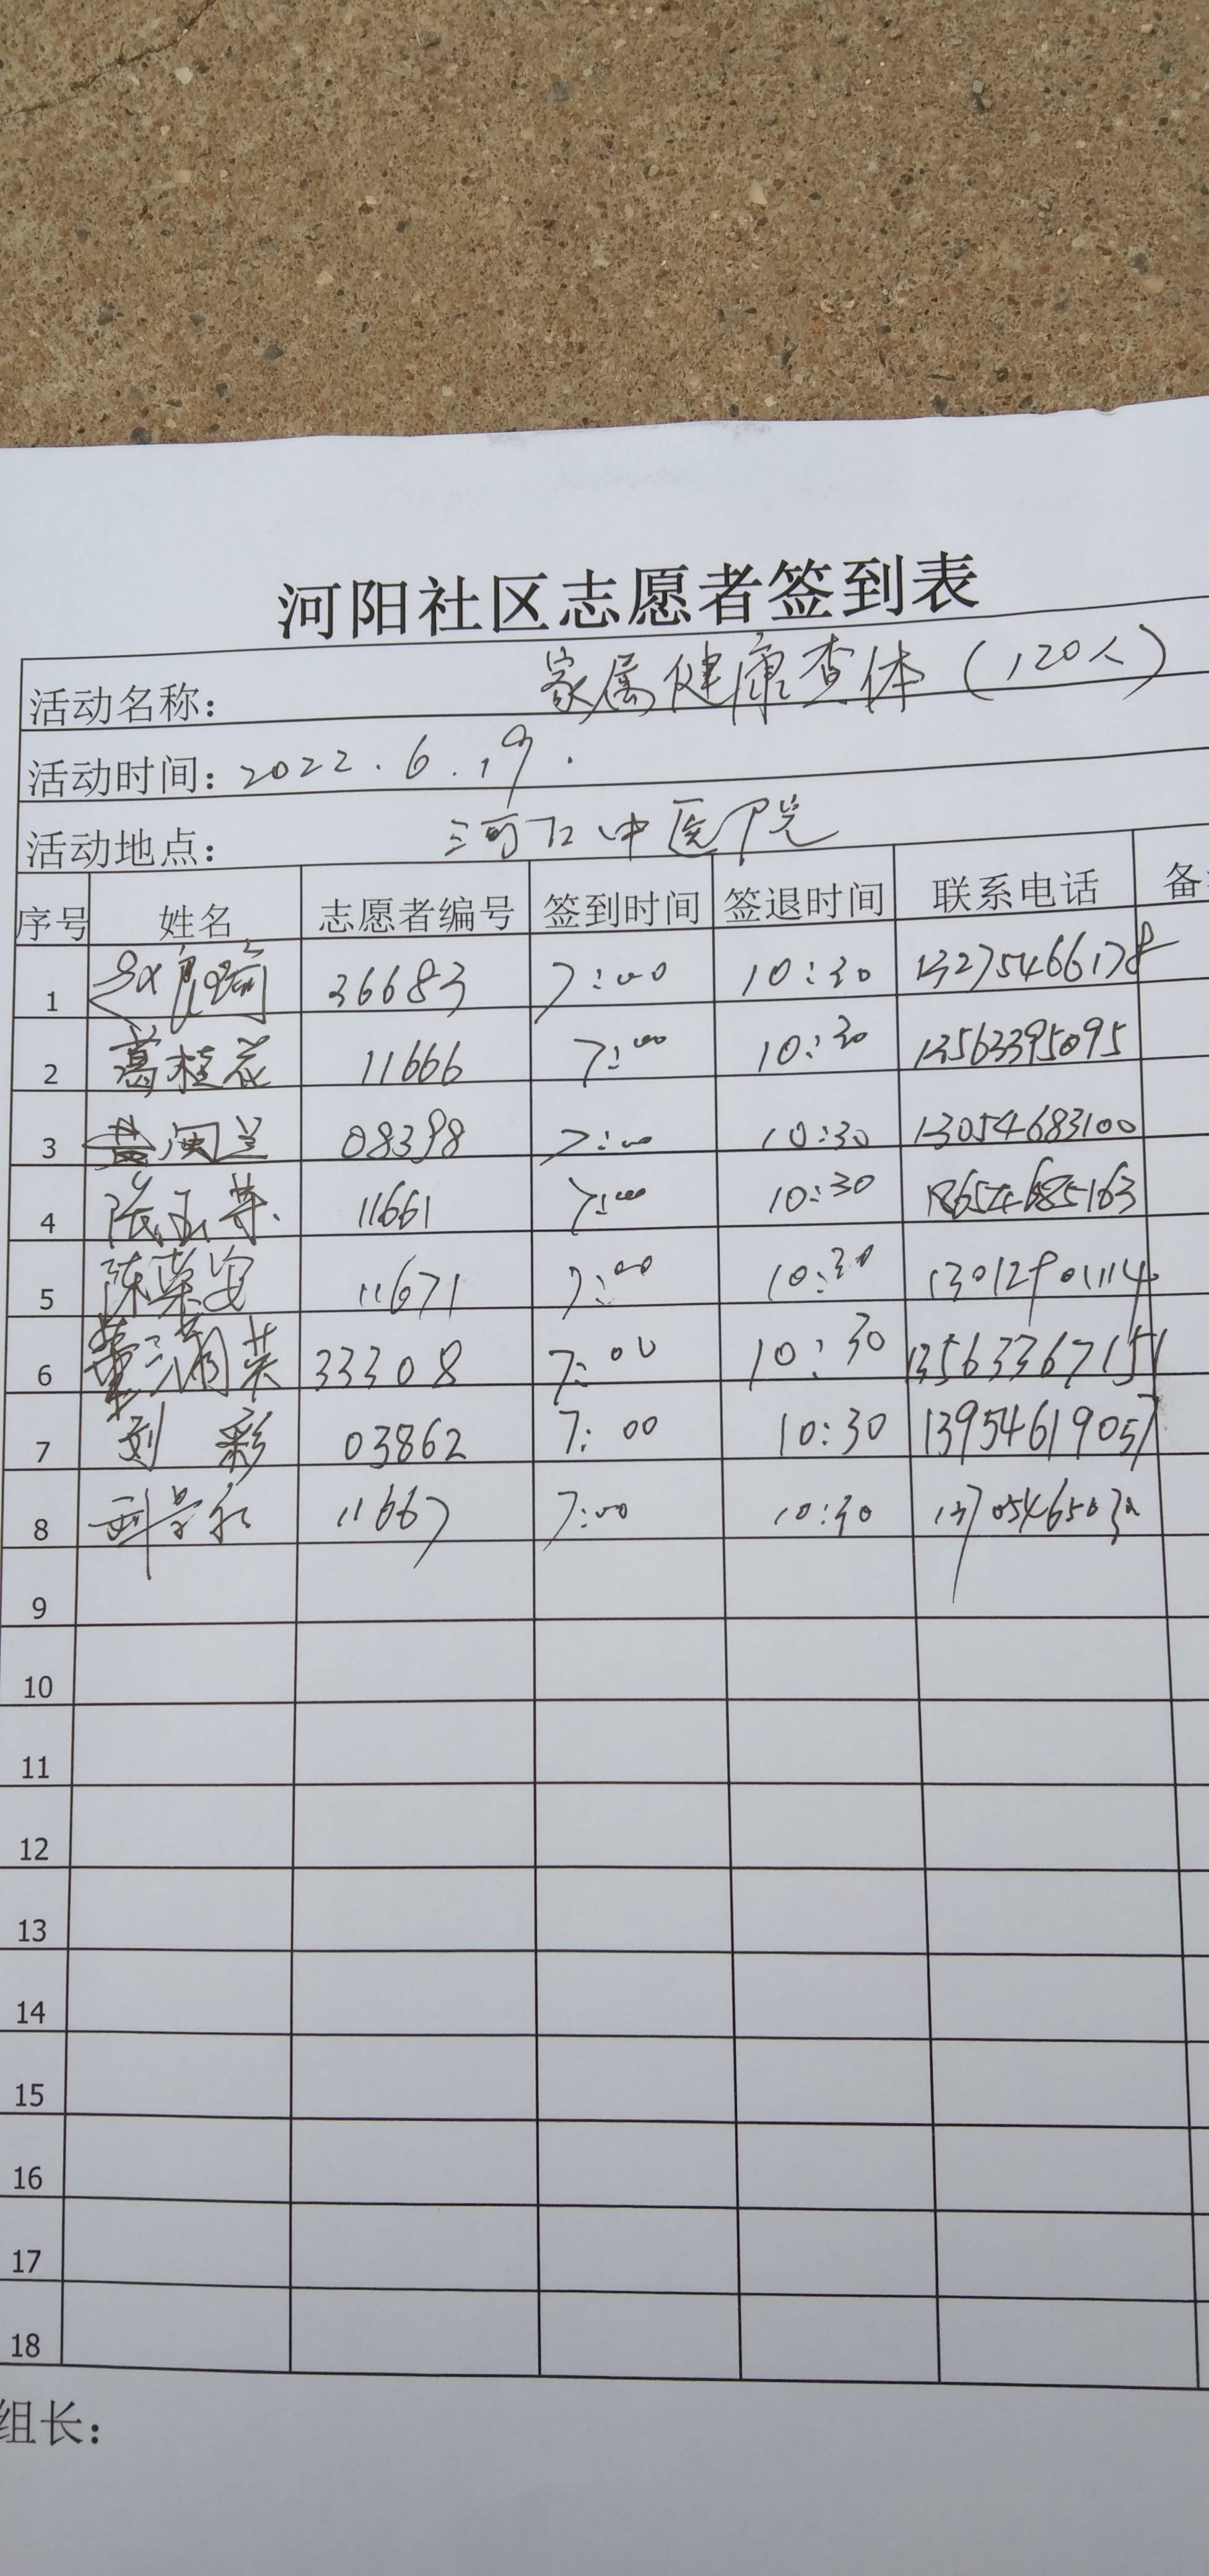 河阳社区志愿者签到表
活动名称： 家属健康查体（120人）
活动时间：2022.6.19.
活动地点： 河口中医院
序号 姓名 志愿者编号 签到时间 签退时间 联系电话 备
1 36683 7:00 10:30 13275466178
2 葛桂花 11666 7:00 10:30 13563395095
3 盖闽兰 08398 7:00 10:30 13054683100
4 张玉英 11661 7:00 10:30 18654685163
5 陈荣安 11671 7:00 10:30 13012901114
6 董三菊英 33308 7:00 10:30 13563367151
7 刘彩 03862 7:00 10:30 13954619057
8 11667 7:00 10:30
9
10
11
12
13
14
15
16
17
18
组长：